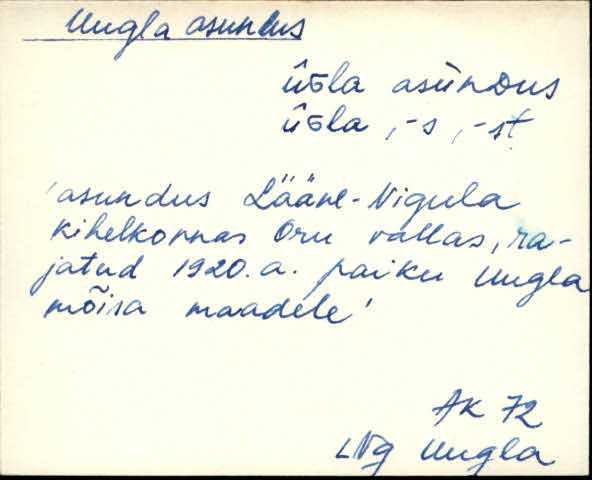 Uugla asundus
ùŏla asùnDus
ùŏla ,-s ,-st
'asundus Lääne-Nigula
kihelkonnas Oru vallas, ra-
jatud 1920. a. paiku Uugla
mõisa maadele'
AK 72
LNg Uugla